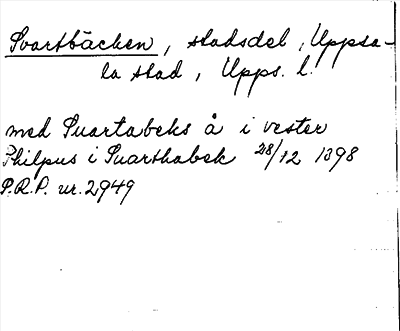 Svartbäcken, stadsdel, Uppsa-
la stad, Upps. l.
med Suartabeks å i vester
Philpus i Suarthabek 28/12 1398
P.R.P. nr. 2949